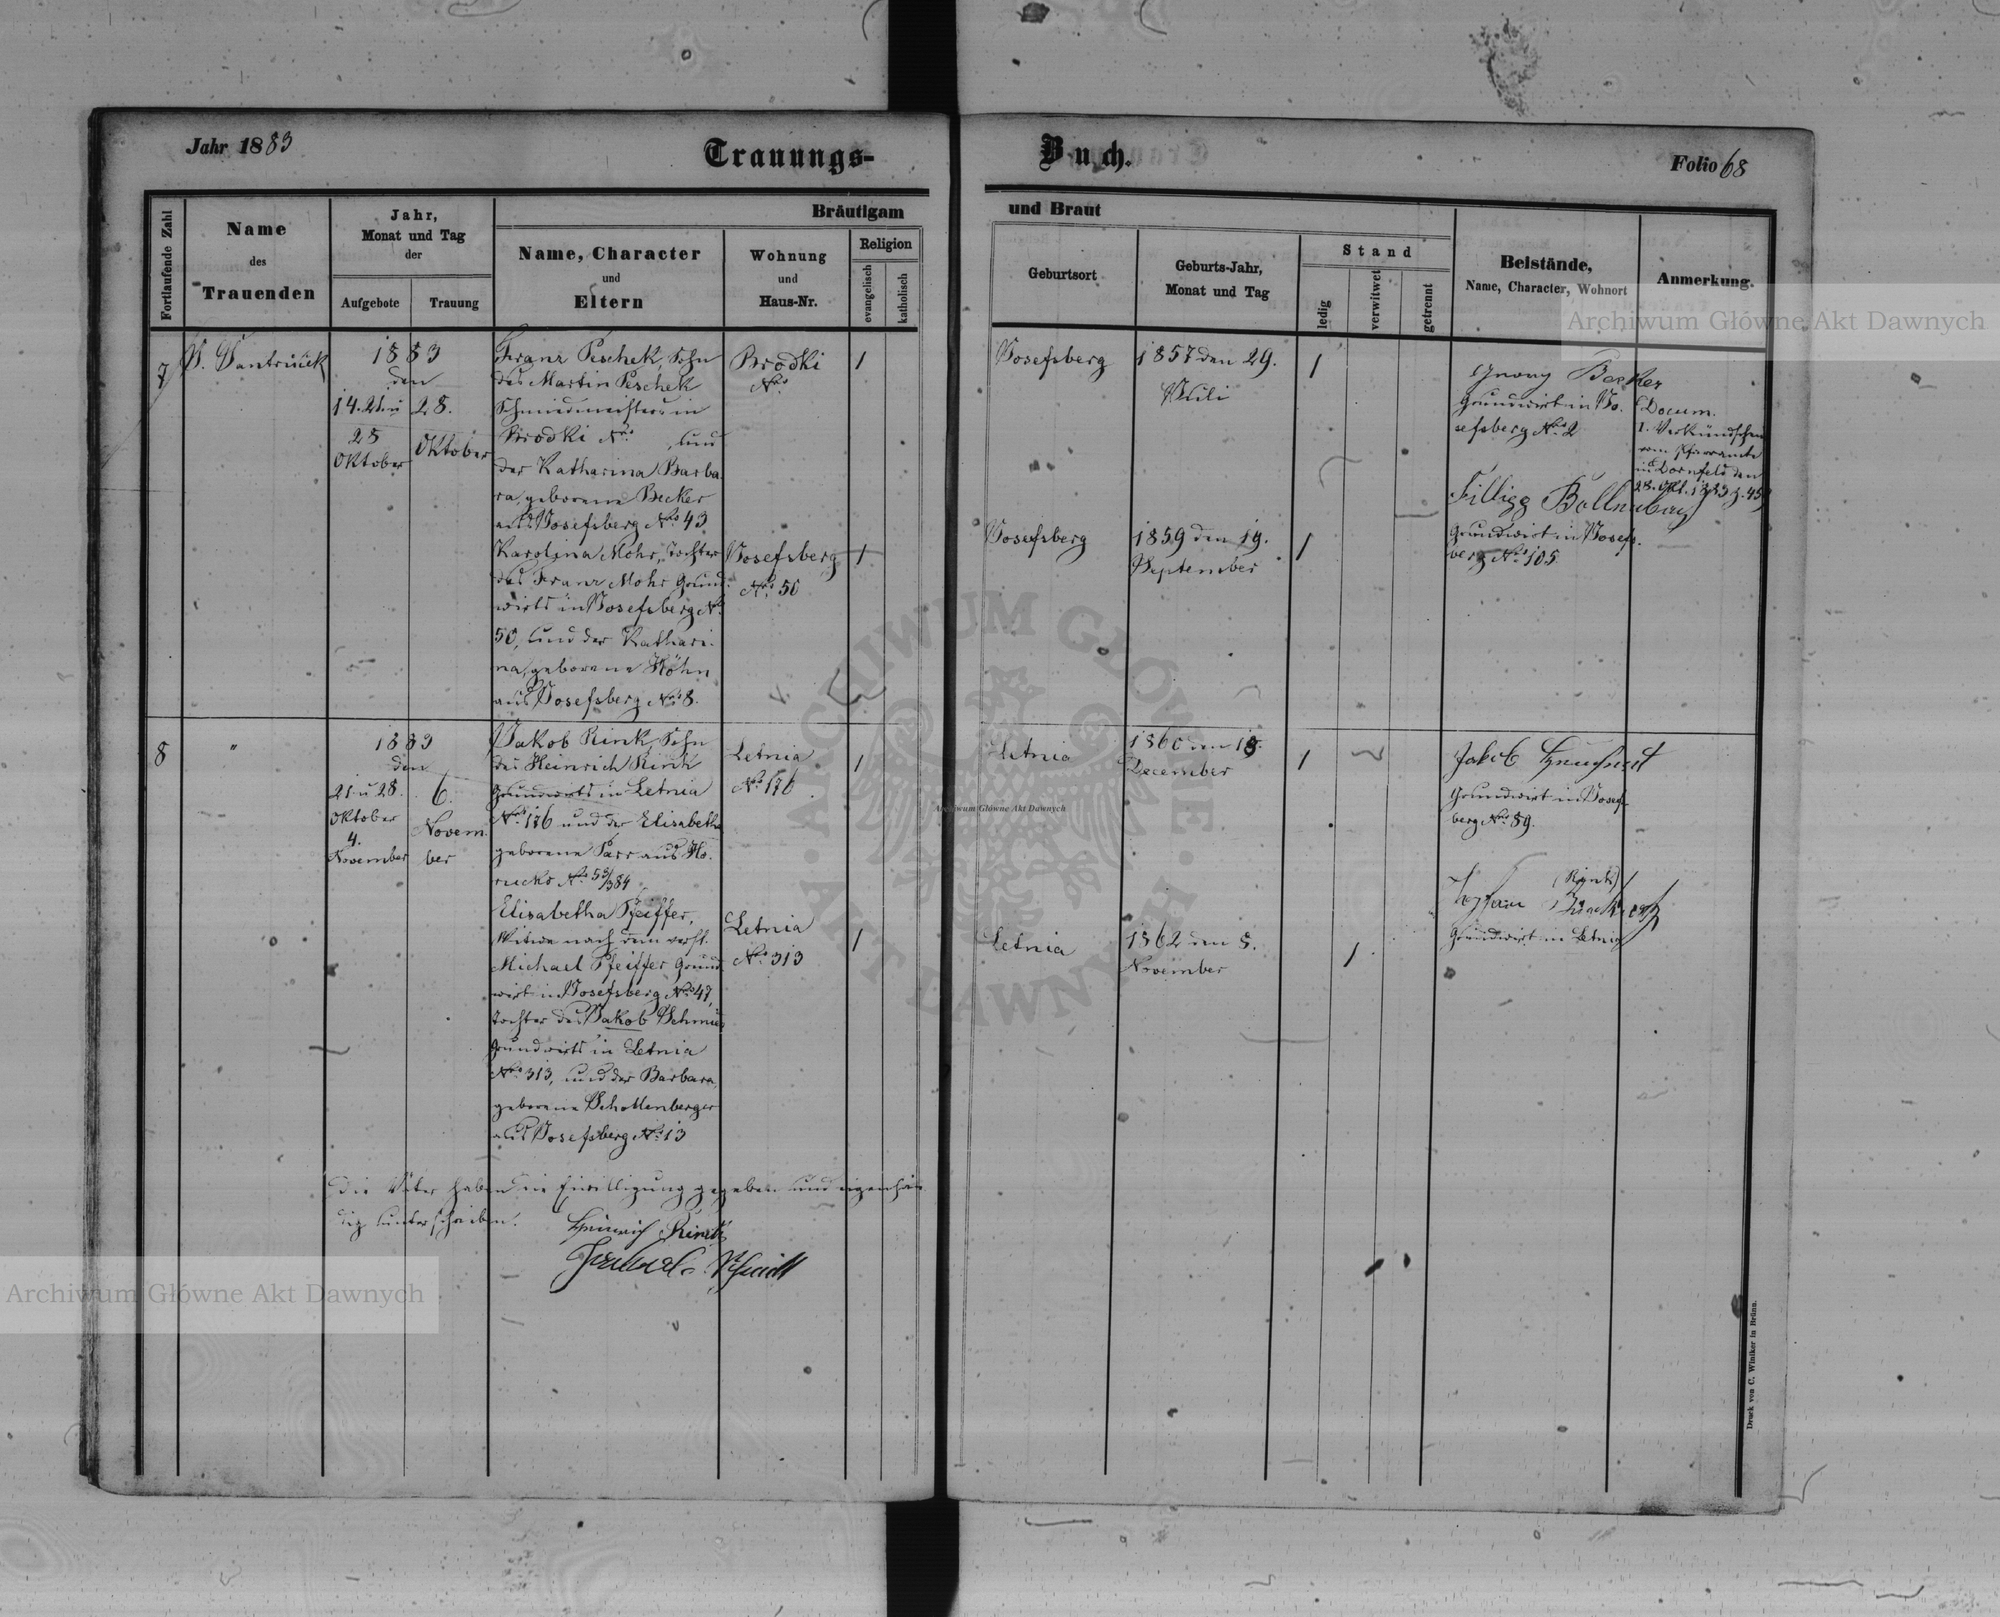 Jahr 1883
Trauungs-
Buch.
Folio 68
Fortlaufende Zahl
Name
des
Trauenden
Jahr,
Monat und Tag
der
Aufgebote
Trauung
Bräutigam
und Braut
Name, Character
und
Eltern
Wohnung
und
Haus-Nr.
Religion
evangelisch
katholisch
Geburtsort
Geburts-Jahr,
Monat und Tag
Stand
ledig
verwitwet
getrennt
Beistände,
Name, Character, Wohnort
Anmerkung.
7
1883
den
14. 21. u
28
Oktober
28.
Oktober
Franz Peschek, Sohn
des Martin Peschek
Schmiedmeisters in
Brodki No. , und
der Katharina Barba-
ra, geborene Becker
aus Josefsberg No. 43
Karolina Mohr, Tochter
des Franz Mohr Grund-
wirts in Josefsberg No.
50, und der Kathari-
na, geborene Höhn
aus Josefsberg No. 8.
Brodki
No.
Josefsberg
No. 50
1
1
Josefsberg
Josefsberg
1857 den 29.
Juli
1859 den 19.
September
1
1
Georg Becker
Grundwirt in Jo-
sefsberg No. 2
Grundwirt in Josefs-
berg No. 105
Docum.
1. Verkündschein
vom Pfarramte
in Dornfeld den
8
"
1883
den
21 u 28.
Oktober
4.
November
6.
Novem-
ber
Jakob Rink, Sohn
des Heinrich Rink
Grundwirts in Letnia
No. 176 und der Elisabetha
geborene Parr aus Ho-
rucko No.
Elisabetha Pfeiffer,
Witwe nach dem verst.
Michael Pfeiffer Grund-
wirt in Josefsberg No. 47,
Tochter des Jakob Schmied
Grundwirts in Letnia
No. 313, und der Barbara,
geborene Schollenberger
aus Josefsberg No. 13
Letnia
No. 176
Letnia
No. 313
1
1
Letnia
Letnia
1860 den 18.
December
1862 den 8.
November
1
1
Jakob
Grundwirt in Josefs-
berg No. 89.
Grundwirt in Letnia
Die Väter haben die Einwilligung gegeben und eigenhän-
dig unterschrieben.
Heinrich Rink
Druck von C. Winiker in Brünn.
Archiwum Główne Akt Dawnych
Archiwum Główne Akt Dawnych
Archiwum Główne Akt Dawnych
ARCHIWUM GŁÓWNE
· AKT DAWNYCH ·